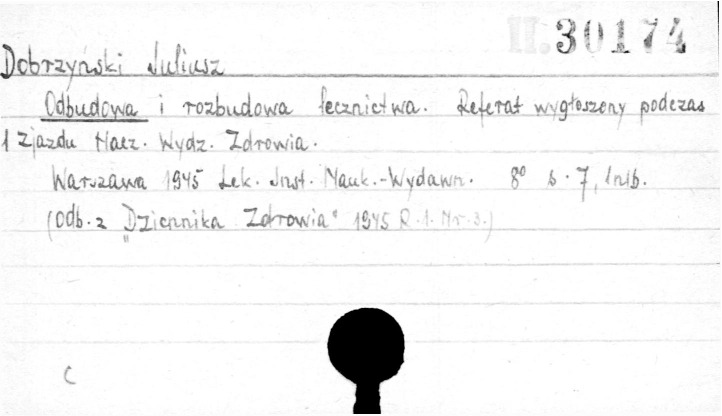 II.30174
Dobrzyński Juliusz
Odbudowa i rozbudowa lecznictwa. Referat wygłoszony podczas
1 Zjazdu Nacz. Wydz. Zdrowia.
Warszawa 1945 Lek. Inst. Nauk.-Wydawn. 8° s. 7, 1 nlb.
(Odb. z „Dziennika Zdrowia" 1945 R. 1. Nr. 3.)
C